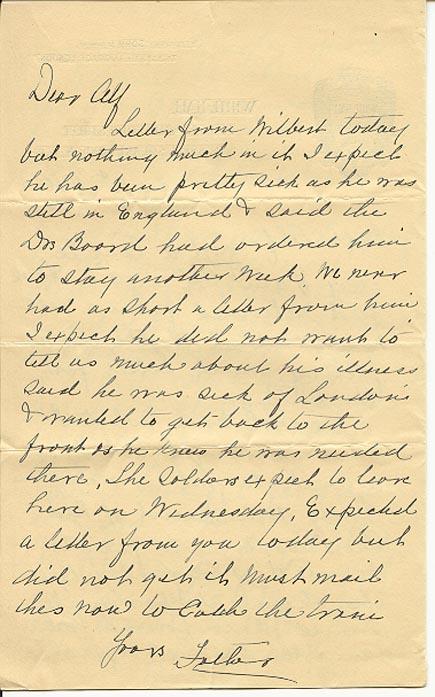 Dear Alf
Letter from Wilbert today
but nothing much in it I expect
he has been pretty sick as he was
still in England & said the
Drs Board had ordered him
to stay another week. We never
had as short a letter from him
I expect he did not want to
tell us much about his illness
said he was sick of London
& wanted to get back to the
front as he knew he was needed
there. The soldiers expect to leave
here on Wednesday. Expected
a letter from you today but
did not get it must mail
this now to catch the train
Yours Father